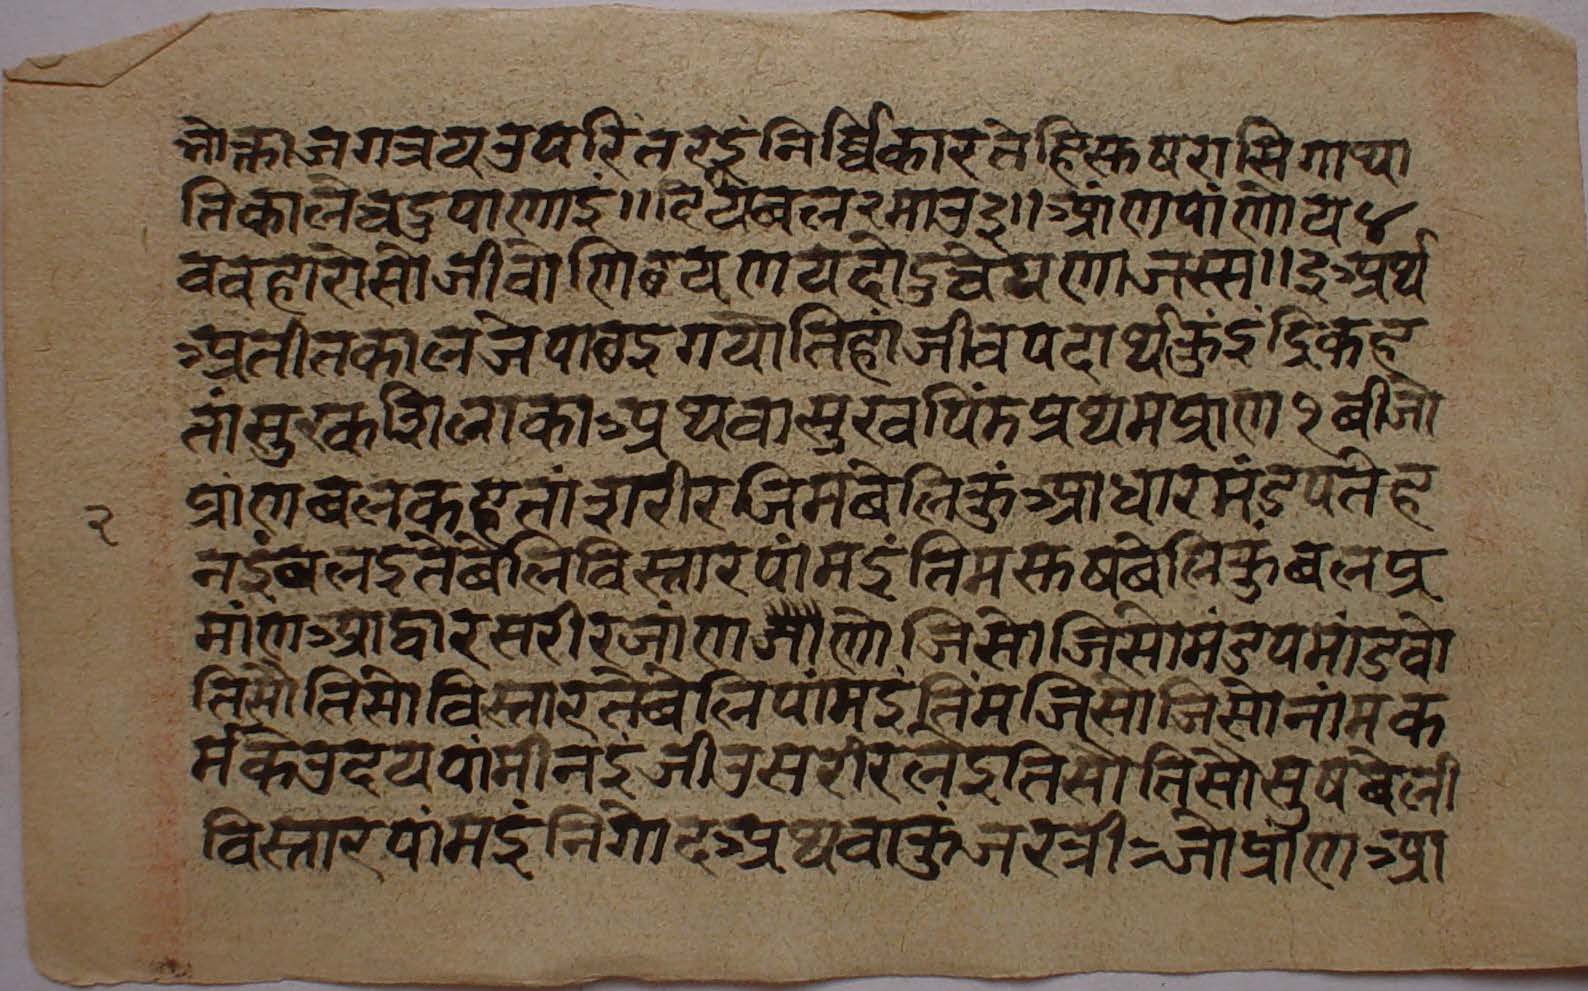 नोक्ता जगत्रय उपरि तरइं निर्व्विकार तेहि सुषरासि गाथा
तिकाले चदु पाणाइं ॥ इंदिय बल २ माउ ३ ॥ आंणपांणो य ४
ववहारो सो जीवो णिछयणयदो दु चेयणा जस्स ॥ ३ अर्थ
अतीत काल जे पाछइ गयो तिहां जीव पदार्थकुं इंद्रि कह
तां सुख शिलाका अथवा सुखपिंड प्रथम प्राण १ बीजो
प्रांण बल कहतां शरीर जिम बेलिकुं आधार मंडप तेह
नइं बलइ ते बेलि विस्तार पांमइं तिम सुष बेलिकुं बल प्र
मांण आद्वार सरीर जांण जांणो जिसो जिसो मंडप मांडवो
तिसो तिसो विस्तार ते बेलि पांमइं तिम जिसो जिसो नांमक
र्म के उदय पांमी नइं जीउ सरीर लइ तिसो तिसो सुष बेली
विस्तार पांमइं निगोद अथवा कुंजर त्रीजो प्रांण आ
२